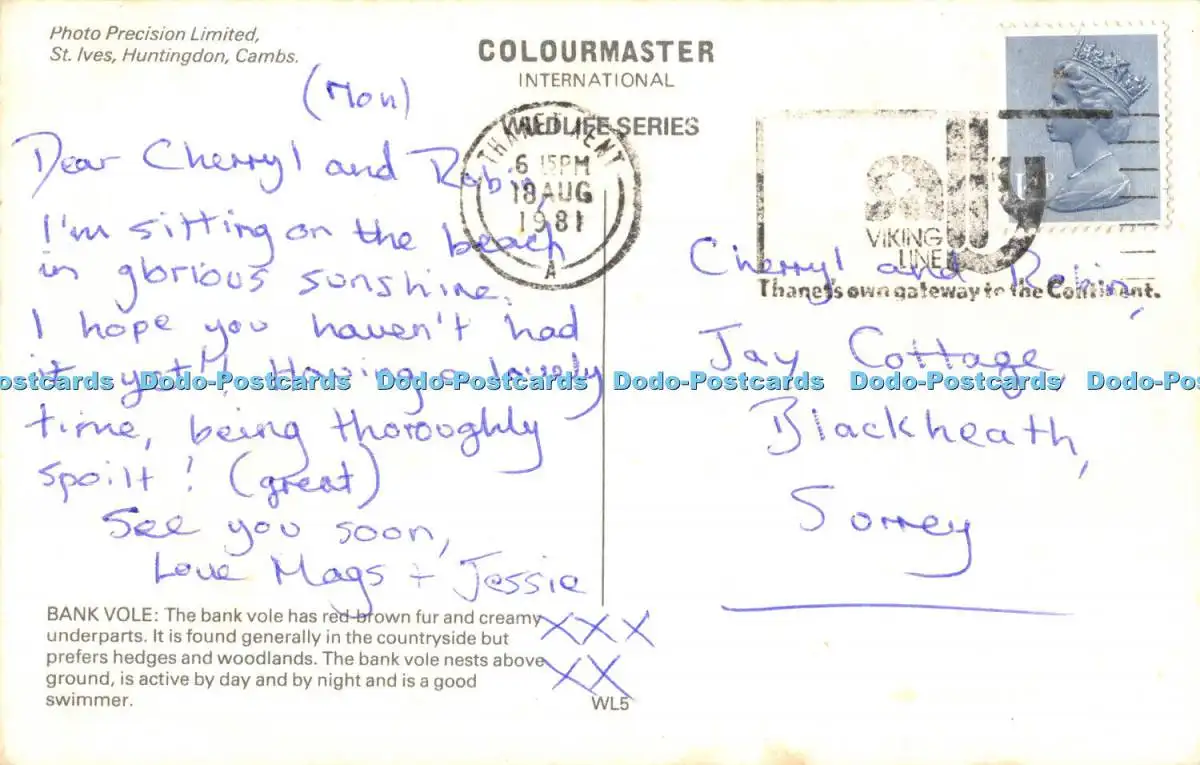 Photo Precision Limited,
St. Ives, Huntingdon, Cambs.
COLOURMASTER
INTERNATIONAL
WILDLIFE SERIES
(Mon)
Dear Cherryl and Robin,
I'm sitting on the beach
in glorious sunshine.
I hope you haven't had
it yet!! Having a lovely
time, being thoroughly
spoilt! (great)
See you soon,
Love Mags + Jessie
XXX
XX
BANK VOLE: The bank vole has red-brown fur and creamy
underparts. It is found generally in the countryside but
prefers hedges and woodlands. The bank vole nests above
ground, is active by day and by night and is a good
swimmer.
WL5
THANET KENT
6 15PM
18 AUG
1981
A
VIKING
LINE
Thanet's own gateway to the Continent.
Cherryl and Robin,
Jay Cottage,
Blackheath,
Sorrey
ostcards Dodo-Postcards Dodo-Postcards Dodo-Postcards Dodo-Postcards Dodo-Pos